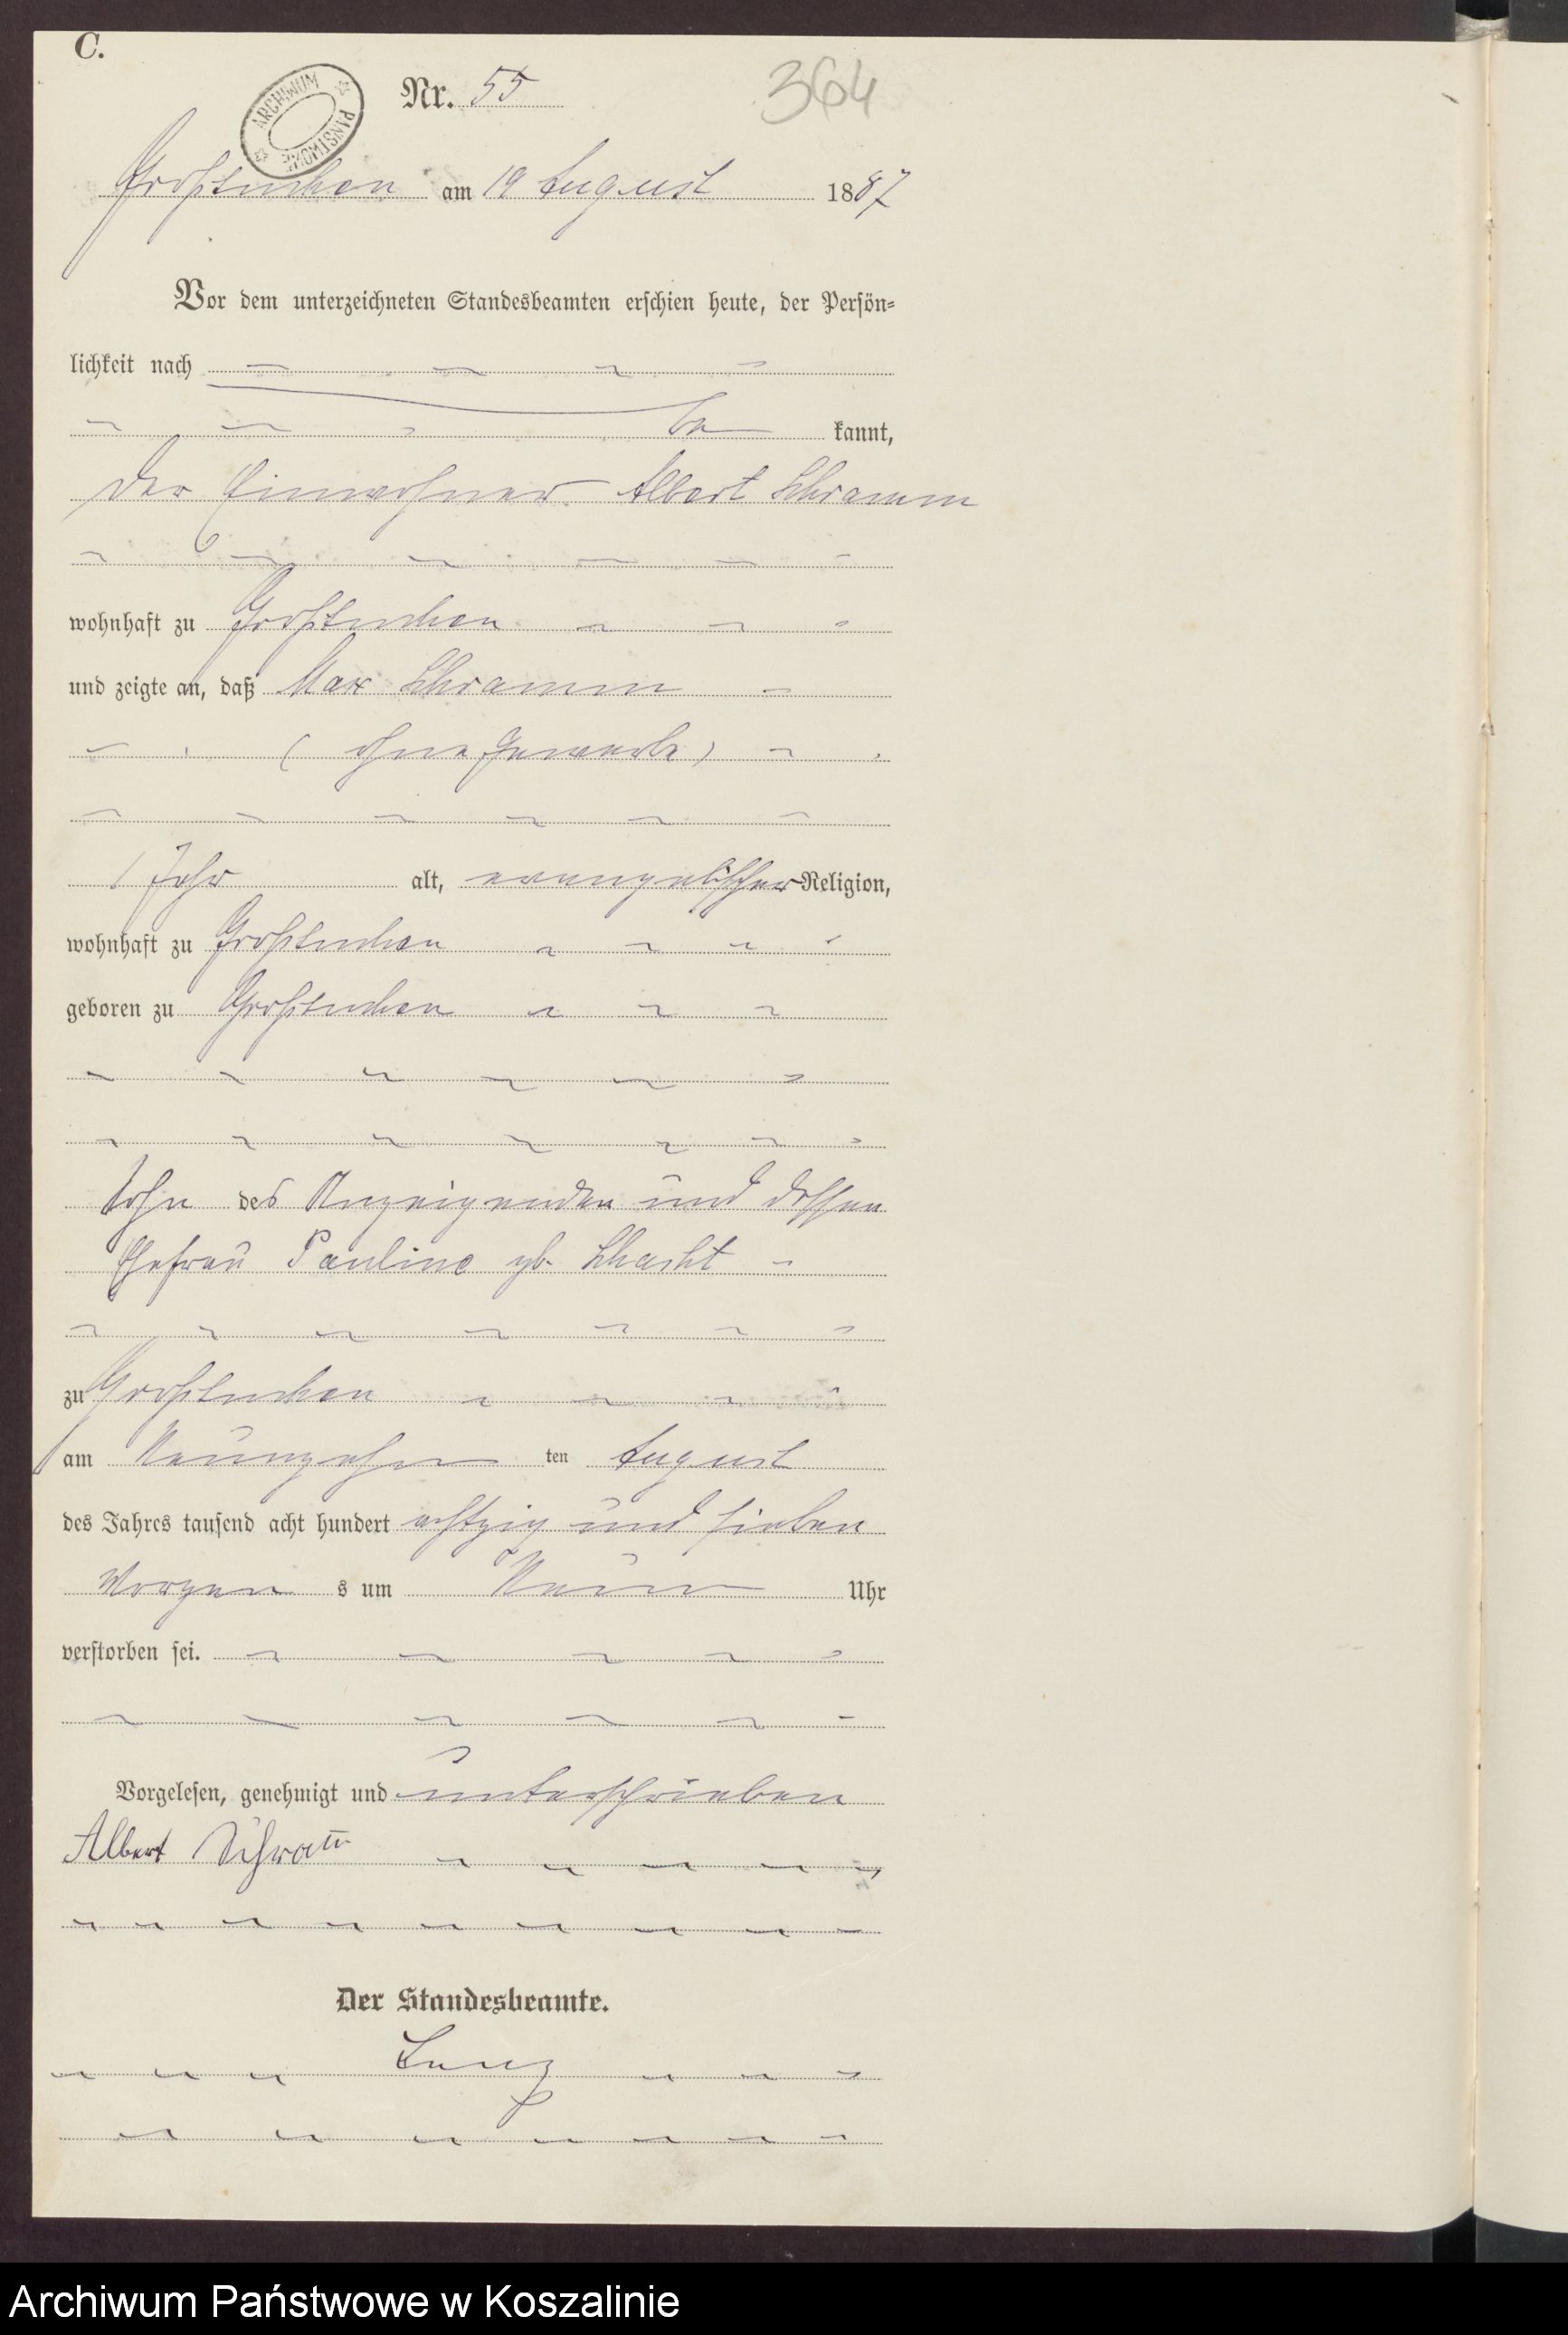 C.
ARCHIWUM PAŃSTWOWE
Nr. 55
364
Großtuchen am 19 August 1887
Vor dem unterzeichneten Standesbeamten erschien heute, der Persön=
lichkeit nach
be kannt,
der Einwohner Albert Schramm
wohnhaft zu Großtuchen
und zeigte an, daß Max Schramm
(ohne Gewerbe)
1 Jahr alt, evangelischer Religion,
wohnhaft zu Großtuchen
geboren zu Großtuchen
Sohn des Anzeigenden und dessen
Ehefrau Pauline gb. Schacht
zu Großtuchen
am Neunzehn ten August
des Jahres tausend acht hundert achtzig und sieben
Morgen s um Neun Uhr
verstorben sei.
Vorgelesen, genehmigt und unterschrieben
Albert Schram̄
Der Standesbeamte.
Archiwum Państwowe w Koszalinie